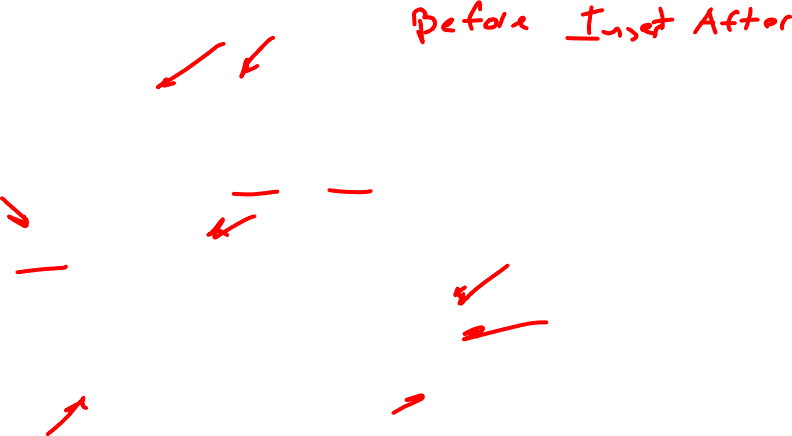 Before Inset After